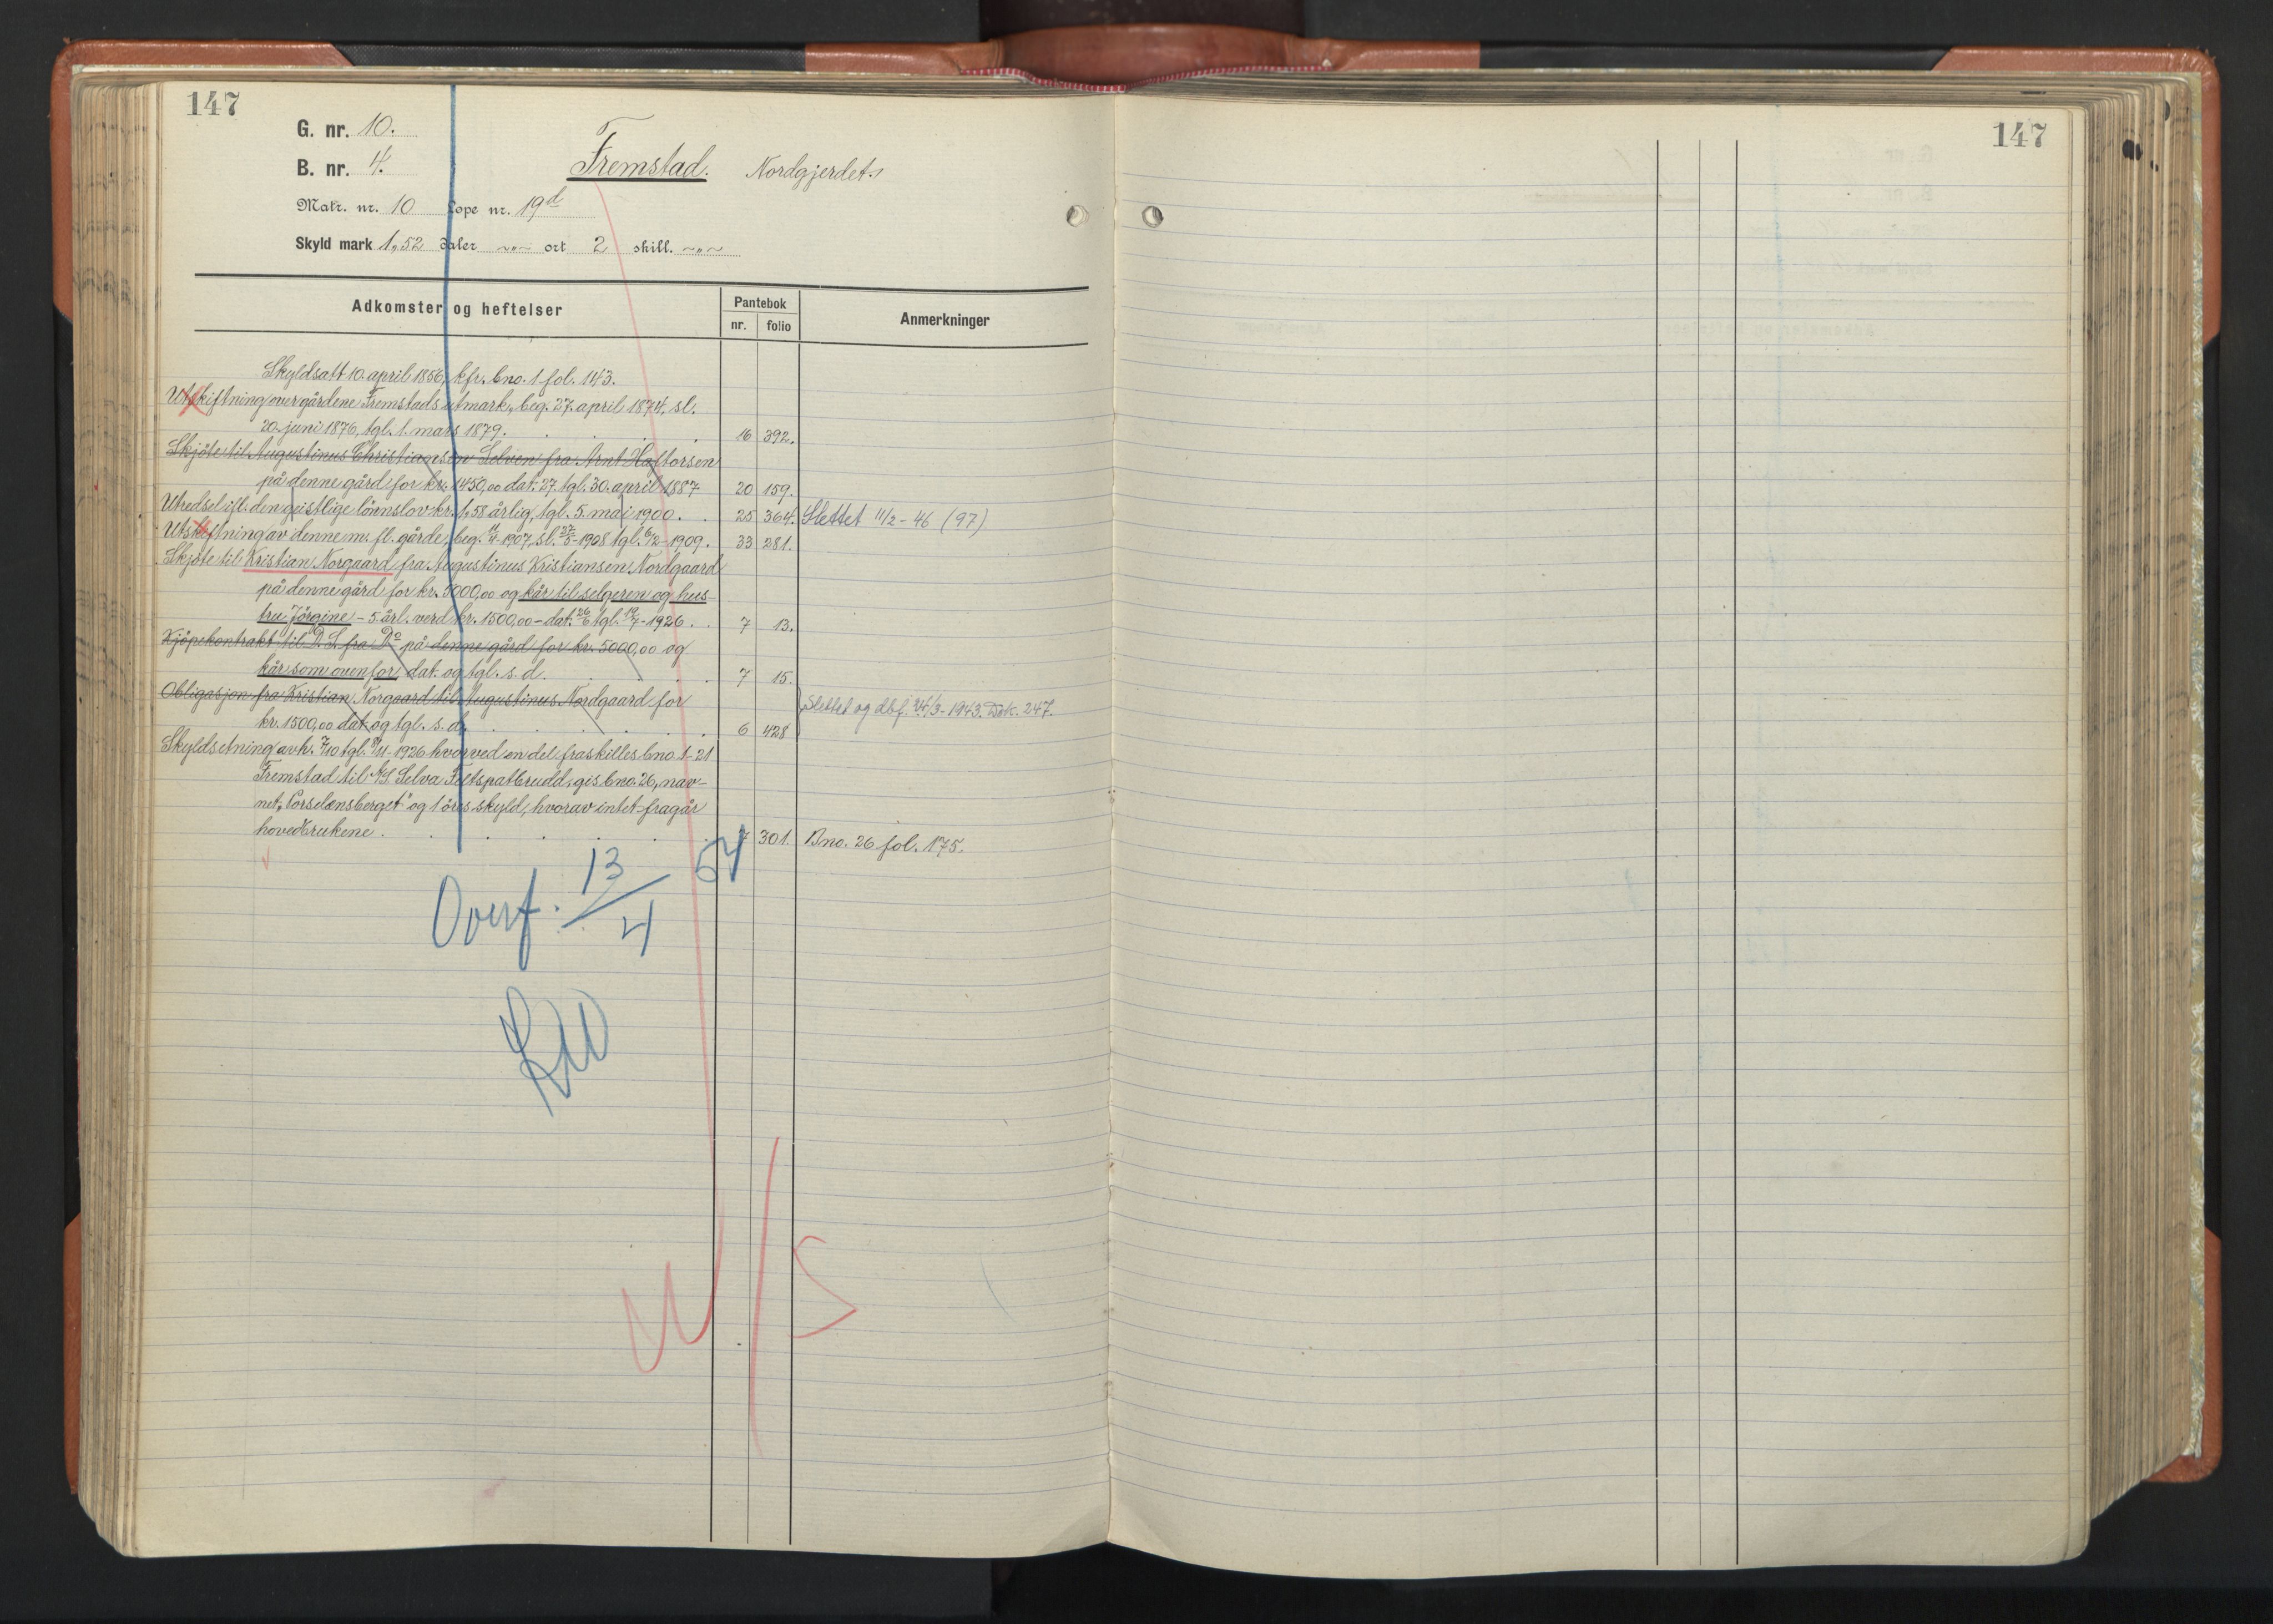 147
147
G. nr. 10.
B. nr. 4.
Fremstad. Nordgjerdet.
Matr. nr. 10 Løpe nr. 19d
Skyld mark 1,52 daler ~"~ ort 2 skill. ~"~
Adkomster og heftelser
Pantebok
nr. folio
Anmerkninger
Skyldsatt 10. april 1856, kfr. bno. 1 fol. 143.
Utskiftning over gårdene Fremstads utmark, beg. 27. april 1874, sl.
20. juni 1876, tgl. 1. mars 1879. 16 392.
Skjöte til Augustinus Christiansen Selven fra Arnt Haftorsen
på denne gård for kr. 1450,00 dat. 27. tgl. 30. april 1887 20 159.
Utredsel ifl. den geistlige lönnslov kr. 1,58 årlig, tgl. 5. mai 1900. 25 364. Slettet 11/2-46 (97)
Utskiftning av denne m. fl. gårde, beg. 11/4-1907, sl. 27/5-1908 tgl. 6/2-1909. 33 281.
Skjöte til Kristian Norgaard fra Augustinus Kristiansen Nordgaard
på denne gård for kr. 5000,00 og kår til selgeren og hus-
tru Jörgine - 5 årl. verd kr. 1500,00 - dat. 26/6 tgl. 19/7-1926. 7 13.
Kjöpekontrakt til D. S. fra Do på denne gård for kr. 5000,00 og
kår som ovenfor, dat. og tgl. s. d. 7 15.
Obligasjon fra Kristian Norgaard til Augustinus Nordgaard for
kr. 1500,00 dat. og tgl. s. d. 6 428 Slettet og dbf. 24/3-1943. Dok. 247.
Skyldsetning avh. 7/10 tgl. 9/11-1926 hvorved en del fraskilles bno. 1-21
Fremstad til A/S. Selva Feltspatbrudd, gis bno. 26, nav-
net "Porselensberget" og 1 öres skyld, hvorav intet fragår
hovedbrukene. 7 301. Bno. 26 fol. 175.
Overf. 13/4 54